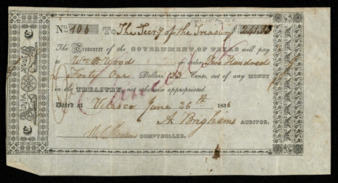 No 106 To The Sec'y of the Treasury 241.33
The Treasurer of the GOVERNMENT OF TEXAS will pay
to Wm W Woods or order Two Hundred
Forty One Dollars 33 Cents, out of any MONEY
in the TREASURY, not otherwise appropriated.
Dated at Velasco June 26th 1836
A Brigham AUDITOR.
COMPTROLLER.